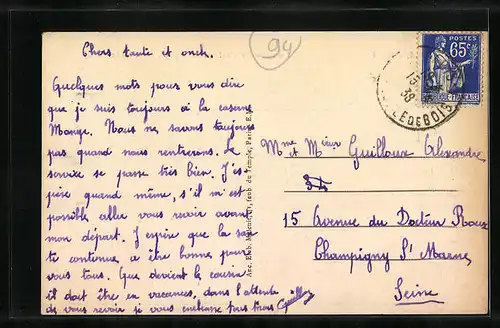 Chers tante et oncle.
Quelques mots pour vous dire
que je suis toujours à la caserne
Monge. Nous ne savons toujours
pas quand nous rentrerons. Le
service se passe très bien. J'es-
père quand même, s'il m'est
possible aller vous revoir avant
mon départ. J'espère que la santé
continue à être bonne pour
vous tous. Que devient le cousin
il doit être en vacances, dans l'attente
de vous revoir je vous embrasse tous trois
94
POSTES
65c
38
Mme et Mieur Guilloux Alexandre
15 Avenue du Docteur Roux
Champigny S/ Marne
Seine